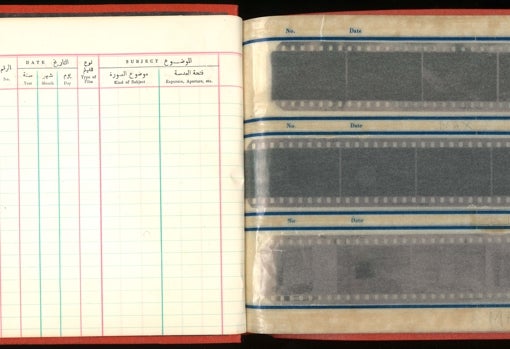 DATE التاريخ
نوع الفيلم
SUBJECT الموضوع
الرقم
سنة
شهر
يوم
موضوع الصورة
فتحة العدسة
No.
Year
Month
Day
Type of Film
Kind of Subject
Exposure, Aperture, etc.
No. Date
No. Date
No. Date